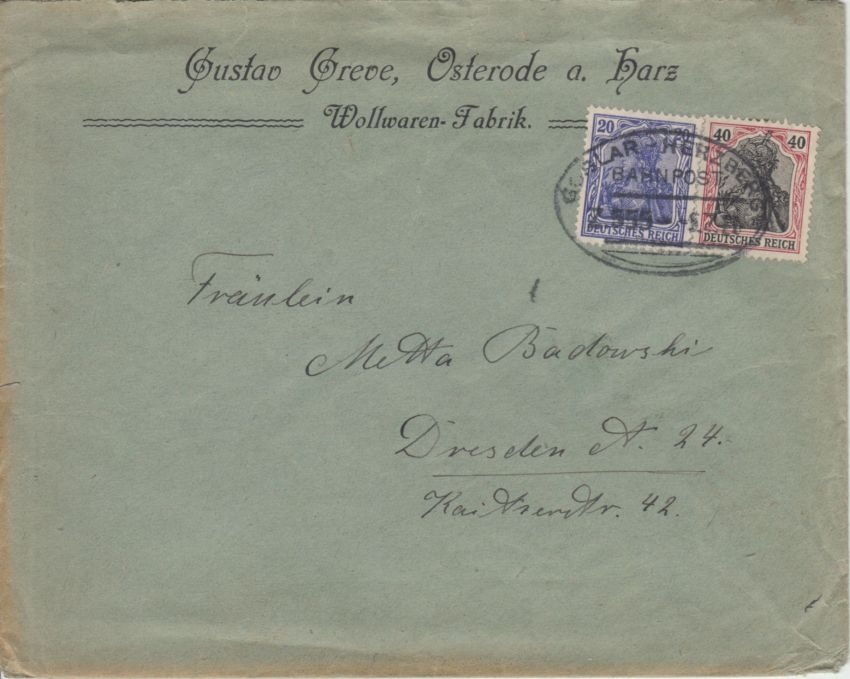 Gustav Greve, Osterode a. Harz
Wollwaren-Fabrik.
20 20
DEUTSCHES REICH
40 40
DEUTSCHES REICH
GOSLAR - HERZBERG
BAHNPOST
Z.555
Fräulein
Metta Badowski
Dresden A. 24.
Kaitzerstr. 42.